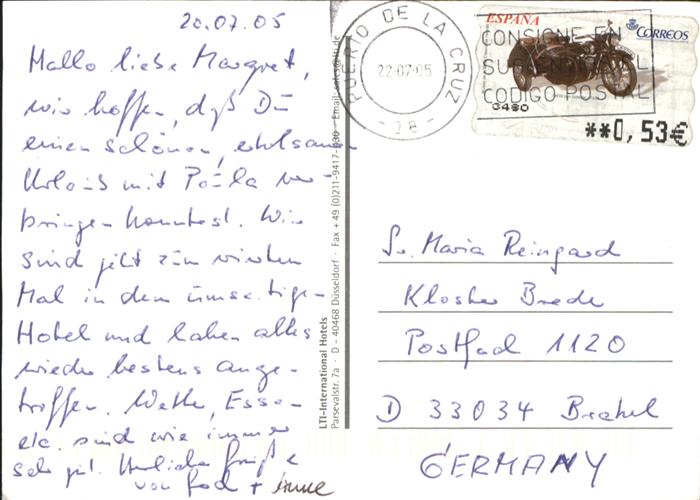 20.07.05
Hallo liebe Margret,
wir hoffen, daß Du
einen schönen, erholsamen
Urlaub mit Paula ver-
bringen konntest. Wir
sind jetzt zum vierten
Mal in dem umseitigen
Hotel und haben alles
wieder bestens ange-
troffen. Wetter, Essen
etc. sind wie immer
sehr gut. Herzliche Grüße
von + Anne
LTI-International Hotels
Parsevalstr. 7a · D - 40468 Düsseldorf · Fax + 49 (0)211-9417- · Email:
PUERTO DE LA CRUZ
22-07-05
- 38 -
CONSIGNE EN
SU
CODIGO POSTAL
ESPAÑA
CORREOS
0480
**0,53€
Sr. Maria Reingard
Kloster Brede
Postfach 1120
D 33034 Brakel
GERMANY